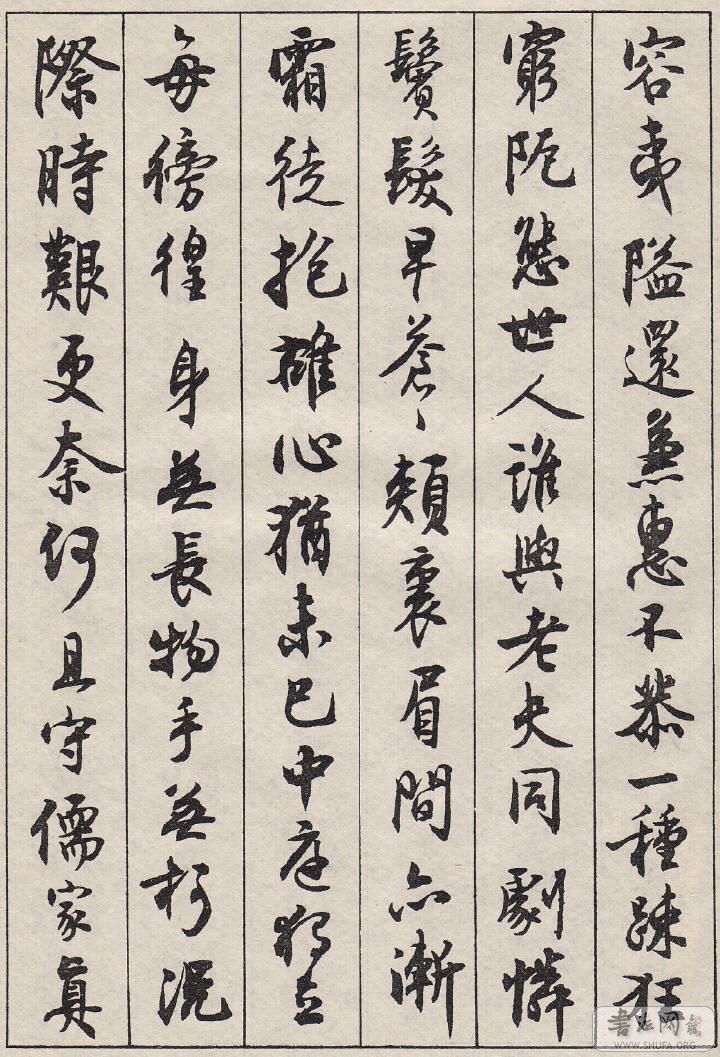 容夷隘還兼惠不恭一種踈狂
窮阨態世人誰與老夫同劇憐
鬢髮早蒼〻頰裏眉間亦漸
霜徒抱雄心猶未已中庭獨立
每徬徨身無長物手無柯況
際時艱更奈何且守儒家真
書法网
WWW.SHUFA.ORG